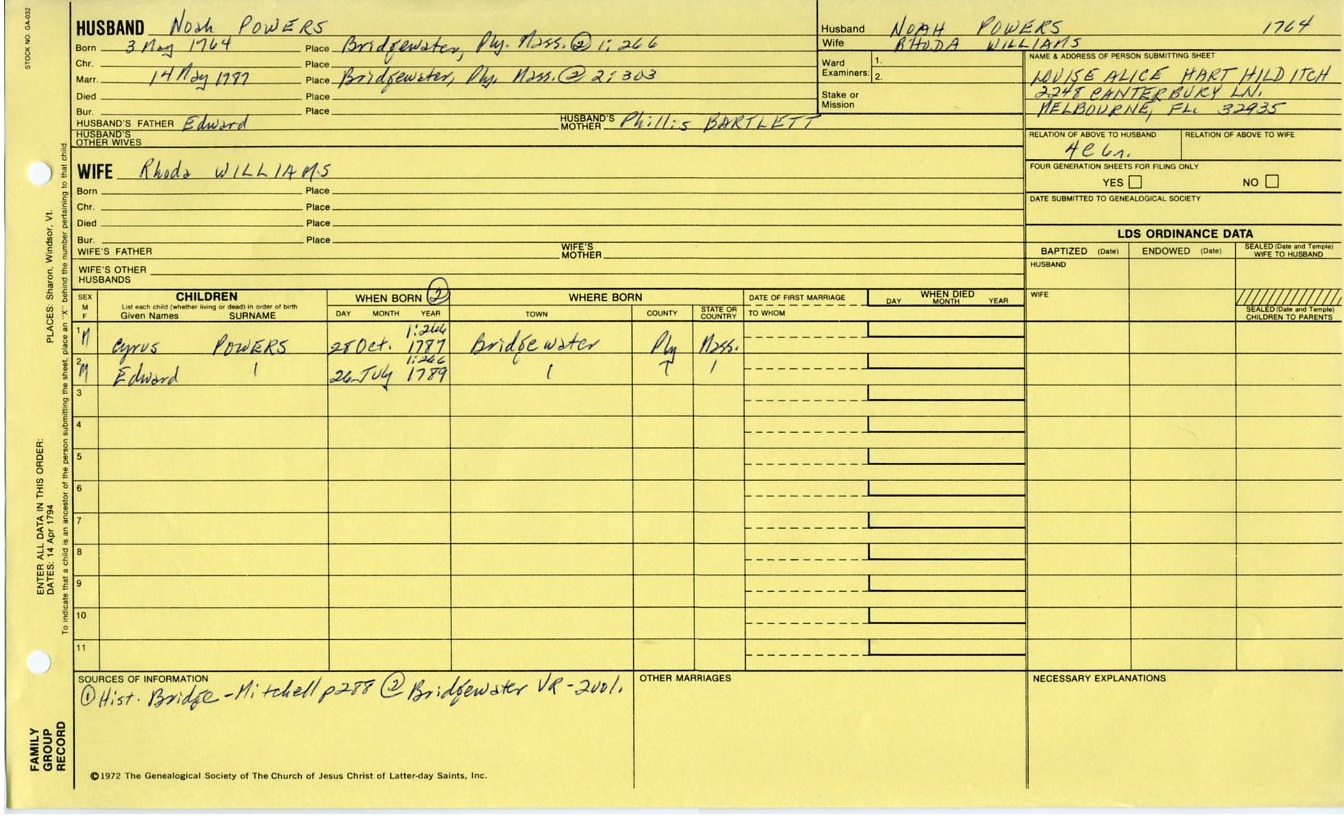 STOCK NO. GA-032
HUSBAND Noah POWERS
Born 3 May 1764 Place Bridgewater, Ply. Mass. ② 1:266
Chr. Place
Marr. 14 May 1787 Place Bridgewater, Ply. Mass. ② 2:303
Died Place
Bur. Place
HUSBAND'S FATHER Edward HUSBAND'S MOTHER Phillis BARTLETT
HUSBAND'S OTHER WIVES
Husband NOAH POWERS 1764
Wife RHODA WILLIAMS
Ward Examiners: 1.
2.
Stake or Mission
NAME & ADDRESS OF PERSON SUBMITTING SHEET
LOUISE ALICE HART HILDITCH
2248 CANTERBURY LN.
MELBOURNE, FL. 32935
RELATION OF ABOVE TO HUSBAND RELATION OF ABOVE TO WIFE
FOUR GENERATION SHEETS FOR FILING ONLY
YES NO
DATE SUBMITTED TO GENEALOGICAL SOCIETY
WIFE Rhoda WILLIAMS
Born Place
Chr. Place
Died Place
Bur. Place
WIFE'S FATHER WIFE'S MOTHER
WIFE'S OTHER HUSBANDS
LDS ORDINANCE DATA
BAPTIZED (Date) ENDOWED (Date) SEALED (Date and Temple) WIFE TO HUSBAND
HUSBAND
WIFE
SEALED (Date and Temple) CHILDREN TO PARENTS
SEX M F CHILDREN WHEN BORN ② WHERE BORN DATE OF FIRST MARRIAGE WHEN DIED
List each child (whether living or dead) in order of birth
Given Names SURNAME DAY MONTH YEAR TOWN COUNTY STATE OR COUNTRY TO WHOM DAY MONTH YEAR
1:266
1 M Cyrus POWERS 28 Oct. 1787 Bridgewater Ply Mass.
1:266
2 M Edward 26 July 1789
3
4
5
6
7
8
9
10
11
SOURCES OF INFORMATION
① Hist. Bridge-Mitchell p288 ② Bridgewater VR-2vol.
OTHER MARRIAGES
NECESSARY EXPLANATIONS
©1972 The Genealogical Society of The Church of Jesus Christ of Latter-day Saints, Inc.
FAMILY GROUP RECORD
ENTER ALL DATA IN THIS ORDER:
DATES: 14 Apr 1794
PLACES: Sharon, Windsor, Vt.
To indicate that a child is an ancestor of the person submitting the sheet, place an "X" behind the number pertaining to that child.